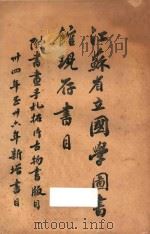 江蘇省立國學圖書
館現存書目
附書畫手札拓片古物書版目
廿四年至廿六年新增書目